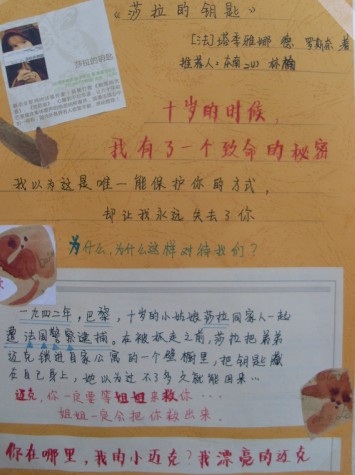 《莎拉的钥匙》
[法]塔季雅娜 德 罗斯奈 著
莎拉的钥匙
推荐人:
十岁的时候,
我有了一个致命的秘密
我以为这是唯一能保护你的方式,
却让我永远失去了你
为什么,为什么这样对待我们?
一九四二年,巴黎,十岁的小姑娘莎拉同家人一起
遭法国警察逮捕。在被抓走之前,莎拉把弟弟
迈克锁进自家公寓的一个壁橱里,把钥匙藏
在自己身上,她以为过不了多久就能回来…
迈克,你一定要等姐姐来救你…
姐姐一定会把你救出来.
你在哪里,我的小迈克?我漂亮的迈克